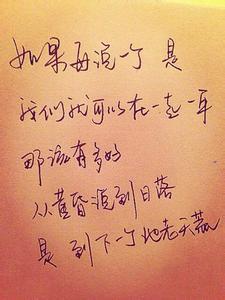 如果再说一个 是
我们就可以在一起
那该有多好
从黄昏到日落
是 到下一个地老天荒